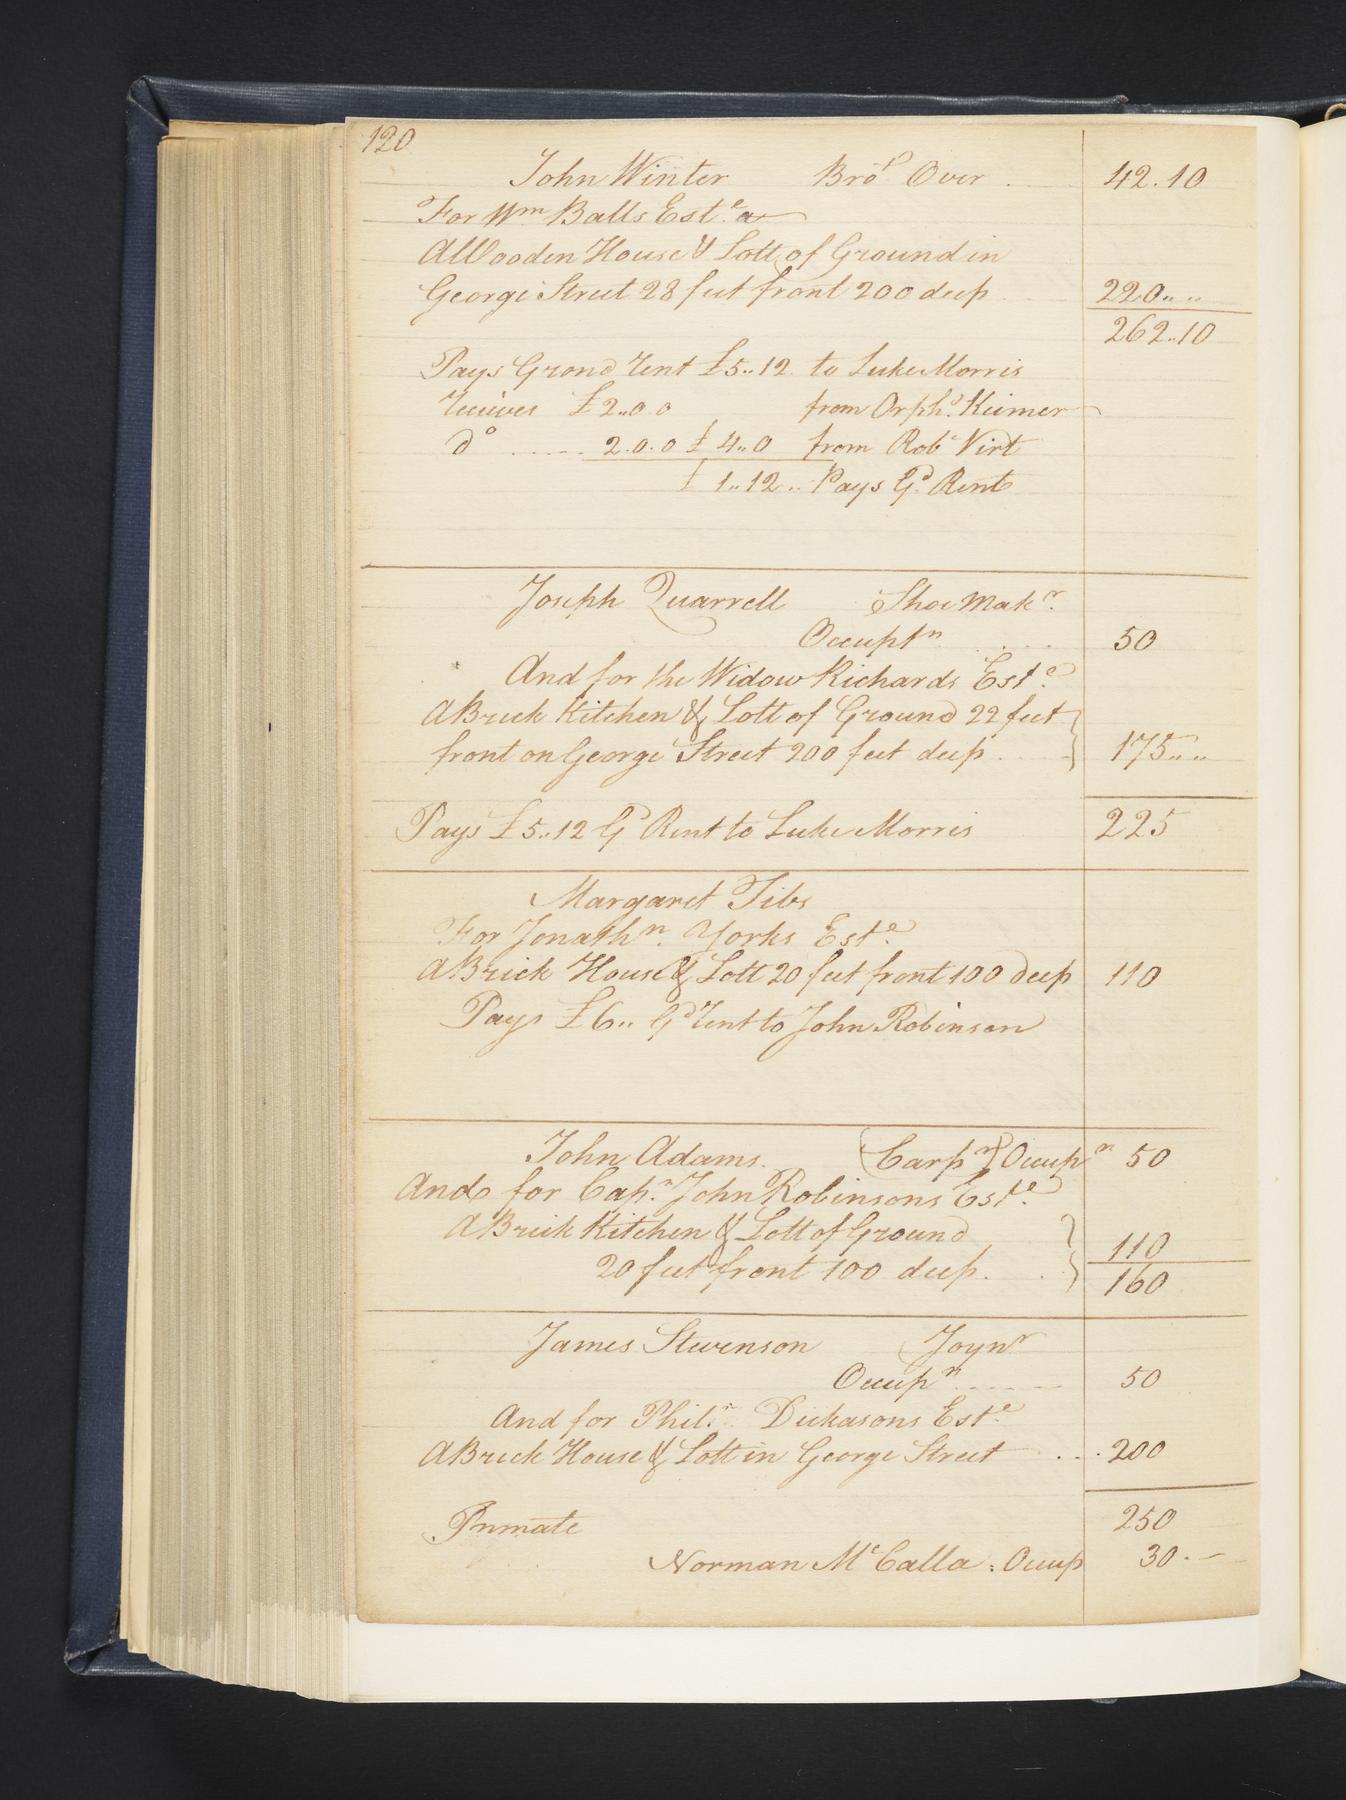 120
John Winter Bro.^t Over . 42.10
For W^m Balls Est.^e a
A Wooden House & Lott of Ground in
George Street 28 feet front 200 deep 220.. ..
262..10
Pays Grond Rent £5..12 to Luke Morris
Receives £2..0.0 from Orph.^s Keimer
d^o ..... 2.0.0 £ 4..0 from Rob^t Virt
£ 1..12 .. Pays G^d Rent
Joseph Quarrell Shoe Mak^r.
Occupt^n .... 50
And for the Widow Richards Est.^e
A Brick Kitchen & Lott of Ground 22 feet
front on George Street 200 feet deep . 175.. ..
Pays £5..12 G^d Rent to Luke Morris 225
Margaret Tibs
For Jonath^n. Yorks Est.^e
A Brick House & Lott 20 feet front 100 deep 110
Pays £6.. G^d Rent to John Robinson
John Adams. (Carp^r) Occup^n 50
And for Cap.^n John Robinsons Est.^e
A Brick Kitchen & Lott of Ground
20 feet front 100 deep. . 110
160
James Stevenson Joyn^r
Occup^n ..... 50
And for Phil.^n Dickasons Est.^e
A Brick House & Lott in George Street ... 200
250
Inmate
Norman M^cCalla : Occup 30.—